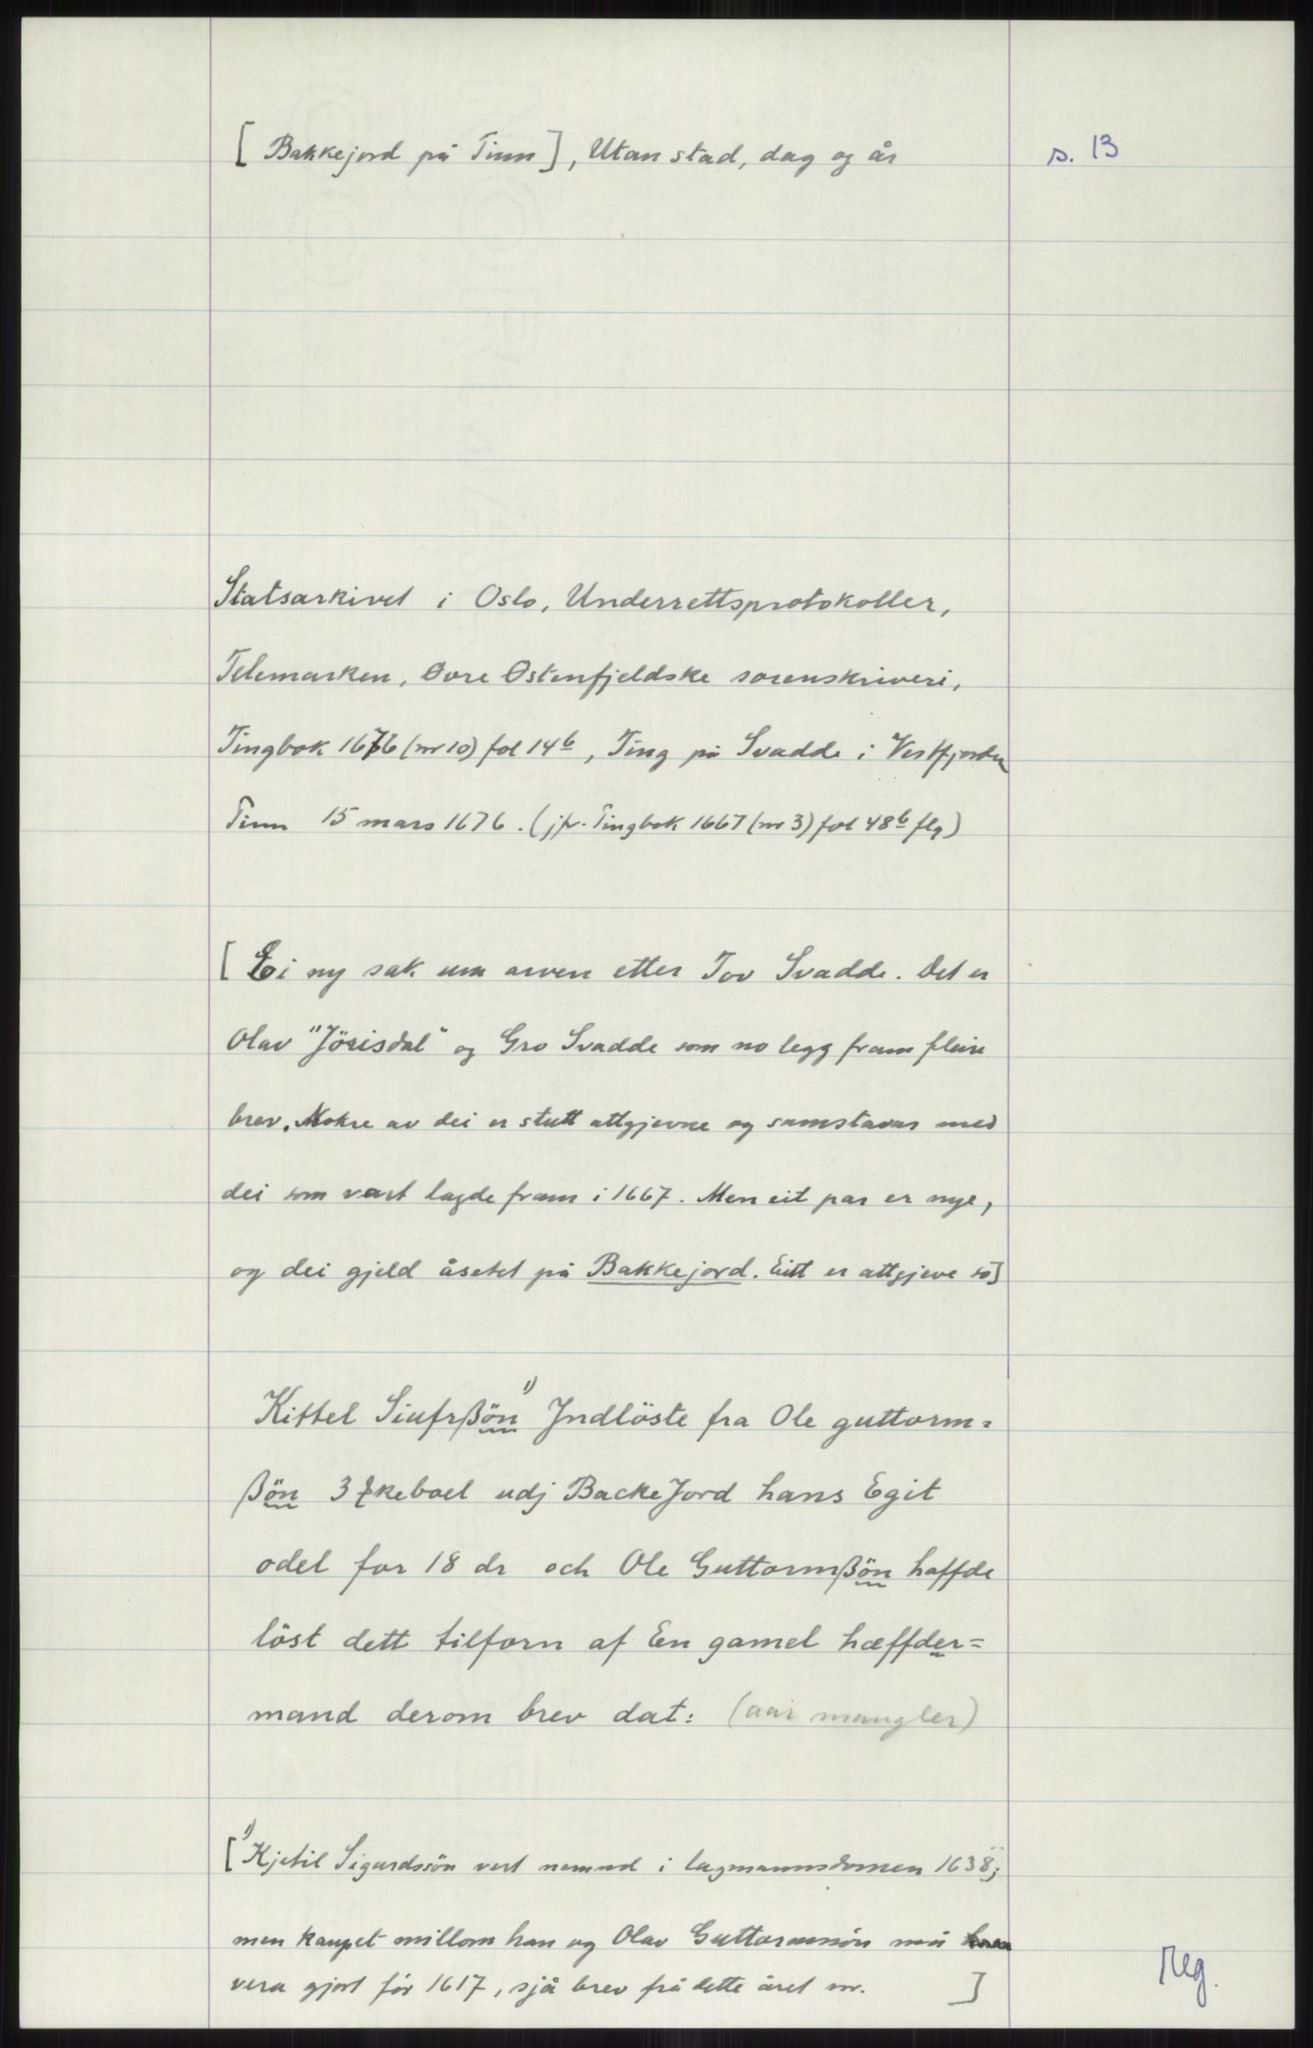 [ Bakkejord på Tinn ], Utan stad, dag og år
s. 13
Statsarkivet i Oslo, Underrettsprotokoller,
Telemarken, Øvre Østenfjeldske sorenskriveri,
Tingbok 1676 (nr 10) fol 14b, Ting på Svadde i Vestfjorden
Tinn 15 mars 1676. (jfr. Tingbok 1667 (nr 3) fol 48b flg)
[ Ei ny sak um arven etter Tov Svadde. Det er
Olav "Jörisdal" og Gro Svadde som no legg fram fleire
brev. Nokre av dei er stutt attgjevne og samstavar med
dei som vart lagde fram i 1667. Men eit par er nye,
og dei gjeld åsetet på Bakkejord. Eitt er attgjeve so]
Kittel Siufrßön 1) Jndlöste fra Ole guttorm=
ßön 3 skeboel udj BackeJord hans Egit
odel for 18 dr och Ole Guttormßön haffde
löst dett tilforn af En gamel hæffder=
mand derom brev dat: (aar mangler)
[ 1) Kjetil Sigurdssön vert nemnd i lagmannsdomen 1638;
men kaupet millom han og Olav Guttormssön må
vera gjort för 1617, sjå brev frå dette året nr. ]
Reg.